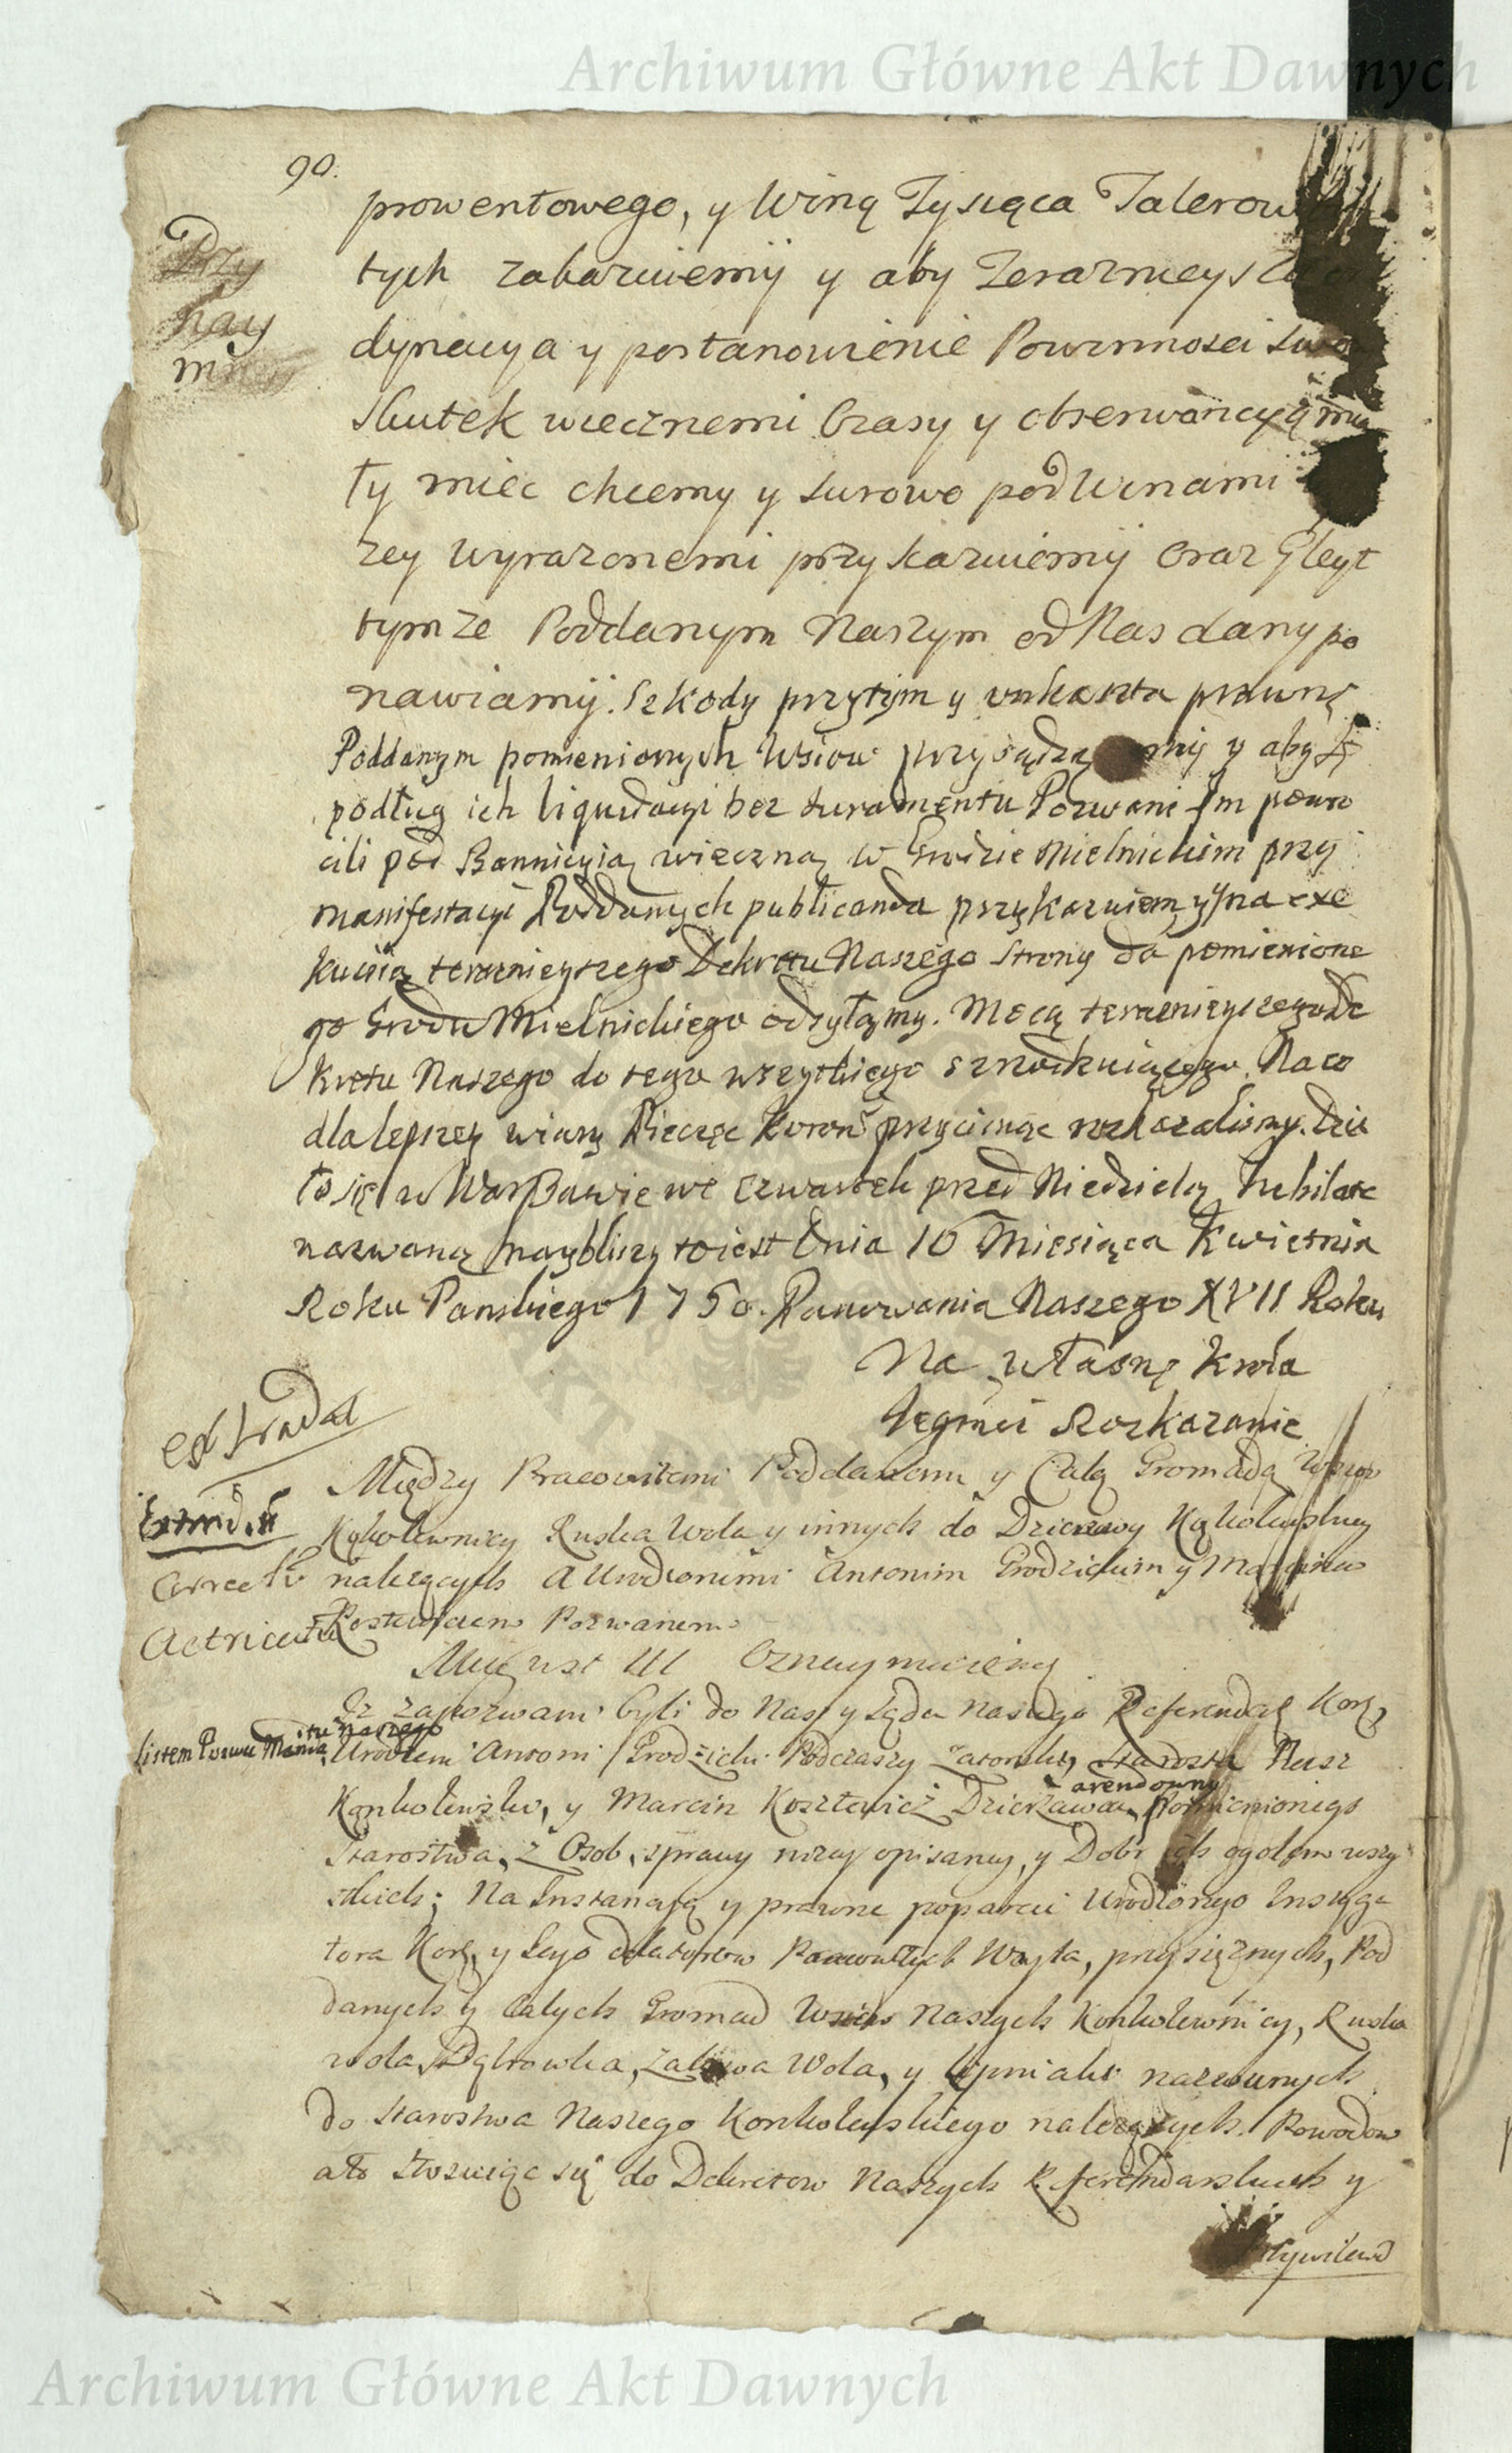 Archiwum Główne Akt Dawnych
90.
prowentowego, y Winą Tysiąca Talerow
tych zakazuiemy y aby Teraznieysza
dynacya y postanowienie Powinnosci swo
Skutek wiecznemi Czasy y obserwancyą
ty miec chcemy y surowo pod Winami
zey wyrazonemi przykazuiemy oraz Gleyt
tymze Poddanym Naszym od Nas dany po
nawiamy. Szkody przytym y prawne
Poddanym pomienionych Wsiow przysądza my y aby
podług ich liquidacyi bez Juramentu Pozwani Im powro
cili pod Bannicyią wieczną w Grodzie Mielnickim przy
manifestacyi Poddanych publicanda przykazuiemy y na exe
kucyią teraznieyszego Dekretu Naszego Strony do pomienione
go Grodu Mielnickiego odsyłamy. Mocą teraznieyszego De
kretu Naszego do tego wszystkiego Na co
dla lepszey wiary Pieczęc Koron przycisnąc rozkazalismy. Dzia
ło się w Warszawie we Czwartek przed Niedzielą Jubilate
nazwaną naybliszy to iest Dnia 16 Miesiąca Kwietnia
Roku Panskiego 1750. Panowania Naszego XVII Roku
Na własne Krola
Jegmci Rozkazanie
extradat
Między Pracowitemi Poddanemi y Całą Gromadą Wsiow
Kąkolewnicy Ruska Wola y innych do Dzierzawy Kąkolewskiey
należących A Urodzonemi Antonim Grodzickim y Marcinem
Pozwanemi
August III Oznaymuiemy
Iż zapozwani byli do Nas y Sądu naszego Referendar Kor
listem Pozwu Manda tu naszego
Urodzeni Antoni Grodzicki Podczaszy Zatorski, Starosta Nasz
Konkolewski, y Marcin Kosztewicz Dzierżawca arendowny pomienionego
Starostwa, z Osob, sprawy niżey opisaney, y Dobr ich ogołem wszy
stkich; Na Instancyą y prawne poparcie Urodzonego Instyga
tora Kor, y Iego delatorow Pracowitych Woyta, przysiężnych, Pod
danych y Całych Gromad Wsiow Naszych Konkolewnicy, Ruska
wola, Dąbrowka, Wola, y Lipniaki nazwanych
do Starostwa Naszego Konkolewskiego należących Powodow
ato stosuiąc się do Dekretow Naszych Referendarskich y